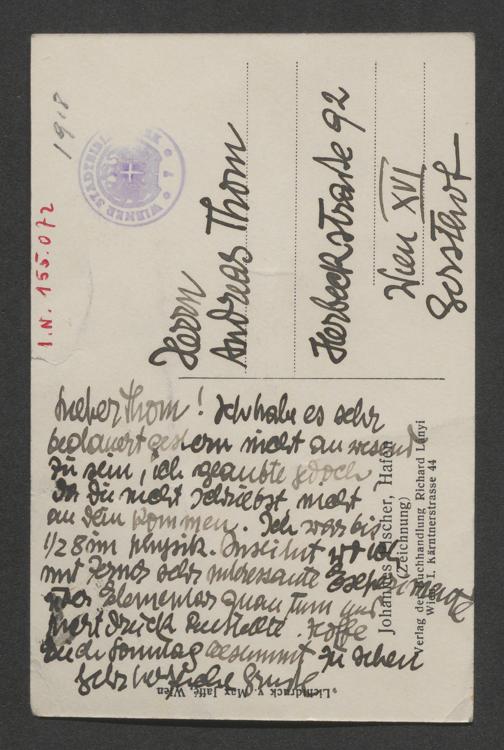 1918
I.N. 155.072
WIENER STADTBIBLIOTHEK
Herrn
Andreas Thom
Herbeckstraße 92
Wien XVI
Gersthof
Lieber Thom! Ich habe es sehr
bedauert gestern nicht anwesend
zu sein, ich glaubte jedoch
da Du nicht schriebst nicht
an Dein Kommen. Ich war bis
1/2 8 im Physik. Institut wo ich
mit sehr interessante Experimente
über Elementarquantum und
anstellte. Hoffe
Euch Sonntag bestimmt zu sehen
Sehr herzliche Grüße
Johannes Fischer, Hafen
(Zeichnung)
Verlag der Buchhandlung Richard Lányi
Wien, I. Kärntnerstrasse 44
„Lichtdruck v. Max Jaffé, Wien